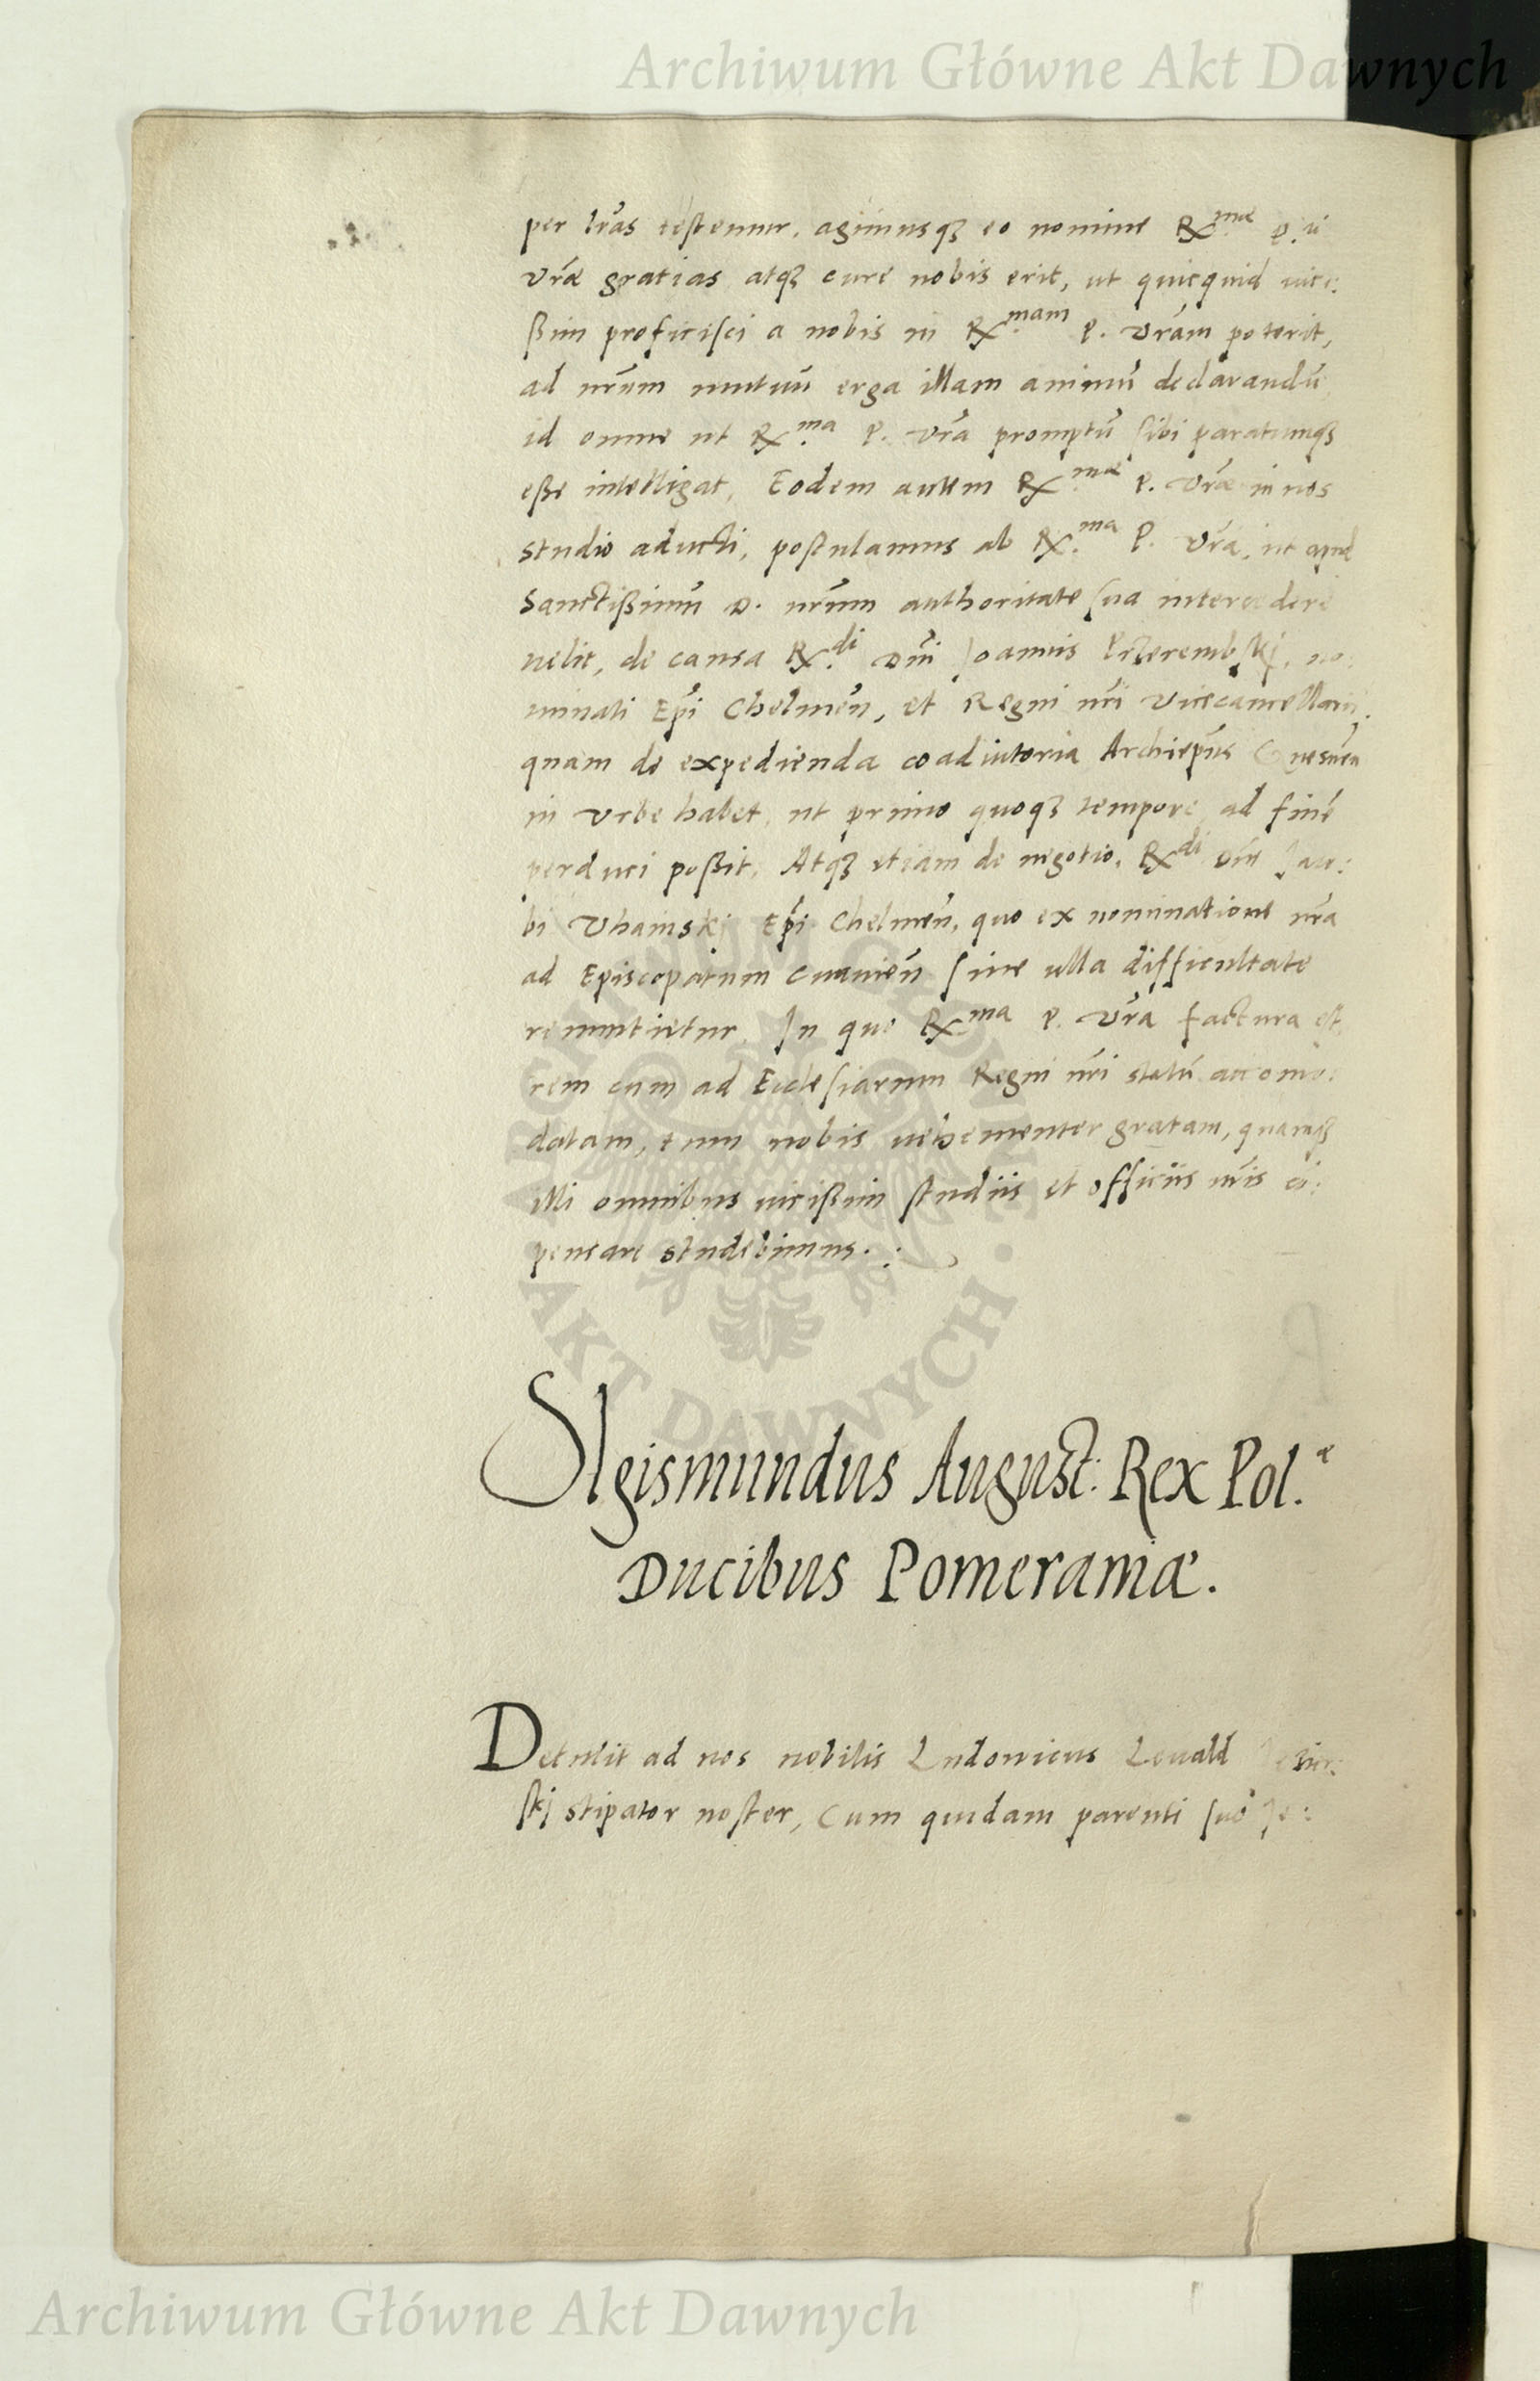 Archiwum Główne Akt Dawnych
per lr̃as testemur, agimusq3 eo nomine Rx.mae P.
Vr̃ae gratias atq3 curę nobis erit, ut quicquid vici:
ßim proficisci a nobis in Rx.mam P. Vr̃am poterit,
ad nr̃um mutuũ erga illam animũ declarandũ
id omne ut Rx.ma P. Vr̃a promptũ sibi paratumq3
eße intelligat, Eodem autem Rx.mae P. Vr̃ae in nos
studio aducti, postulamus ab Rx.ma P. Vr̃a, ut apud
Sanctißimũ D. nr̃um authoritate sua intercedere
velit, de causa Rx.di Dñi Joannis Przerembskj, no:
minati Ep̃i Chelmeñ, et Regni nr̃i Vicecancellarij,
quam de expedienda coadiutoria Archiep̃us Gnesneñ
in Urbe habet, ut primo quoq3 tempore ad finẽ
perduci poßit, Atq3 etiam de negotio, Rx.di Dñi Jaco:
bi Uhainski Ep̃i Chelmeñ, quo ex nominatione nr̃a
ad Episcopatum Cuavieñ sine ulla difficultate
renuntietur, In quo Rx.ma P. Vr̃a factura est
rem cum ad Ecclesiarum Regni nr̃i statũ accomo:
datam, tum nobis vehementer gratam, quamq3
illi omnibus vicißim studiis et officiis nr̃is cõ:
pensare studebimus.
SIgismundus August: Rex Pol.æ
Ducibus Pomeraniæ.
Detulit ad nos nobilis Ludovicus Levald
skj stipator noster, Cum quidam parenti suo Je:
ARCHIWUM GŁÓWNE AKT DAWNYCH
Archiwum Główne Akt Dawnych